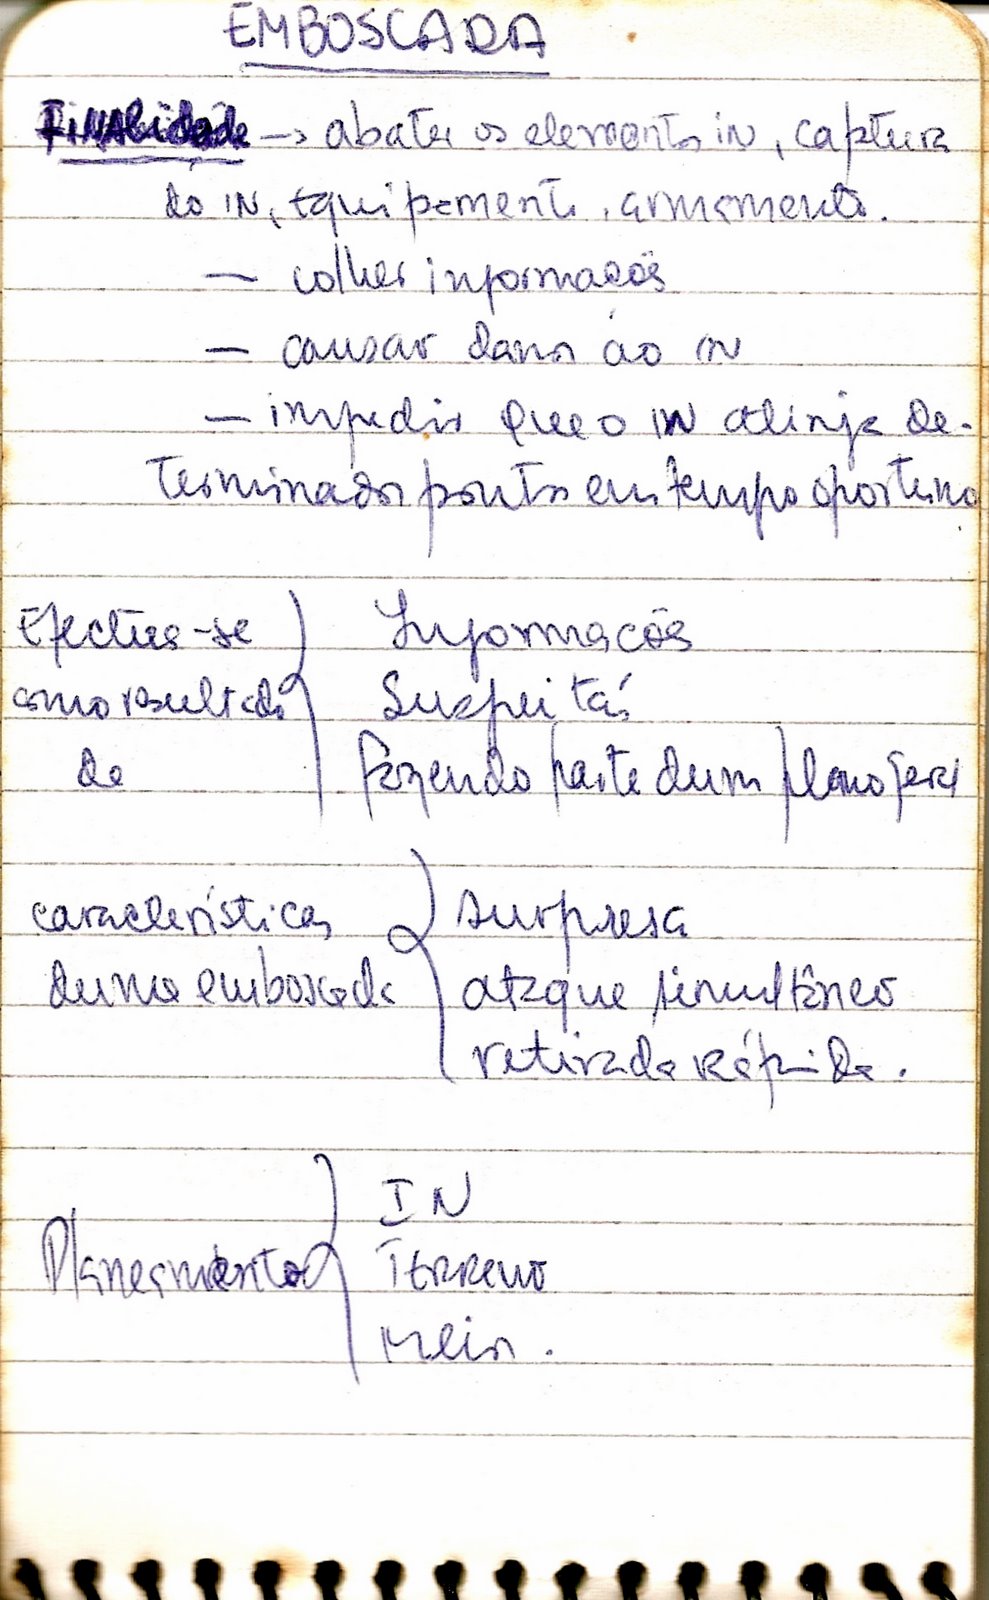 EMBOSCADA
FINALidade → abater os elementos IN, captura
do IN, Equipamento, armamento.
— colher informações
— causar danos ao IN
— impedir que o IN atinja de-
terminados pontos em tempo oportuno
Efectua-se
como resultado
de
Informações
Suspeitas
fazendo parte dum plano geral
características
duma emboscada
surpresa
ataque simultâneo
retirada rápida.
Planeamento
IN
Terreno
Meios.